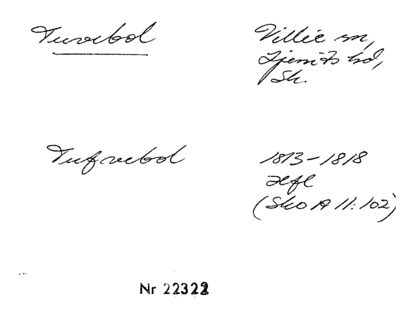 Tuvebol
Villie sn,
Ljunits hd,
Sk.
Tufvebol
1813-1818
Hfl
(Sko A II:102)
Nr 22322